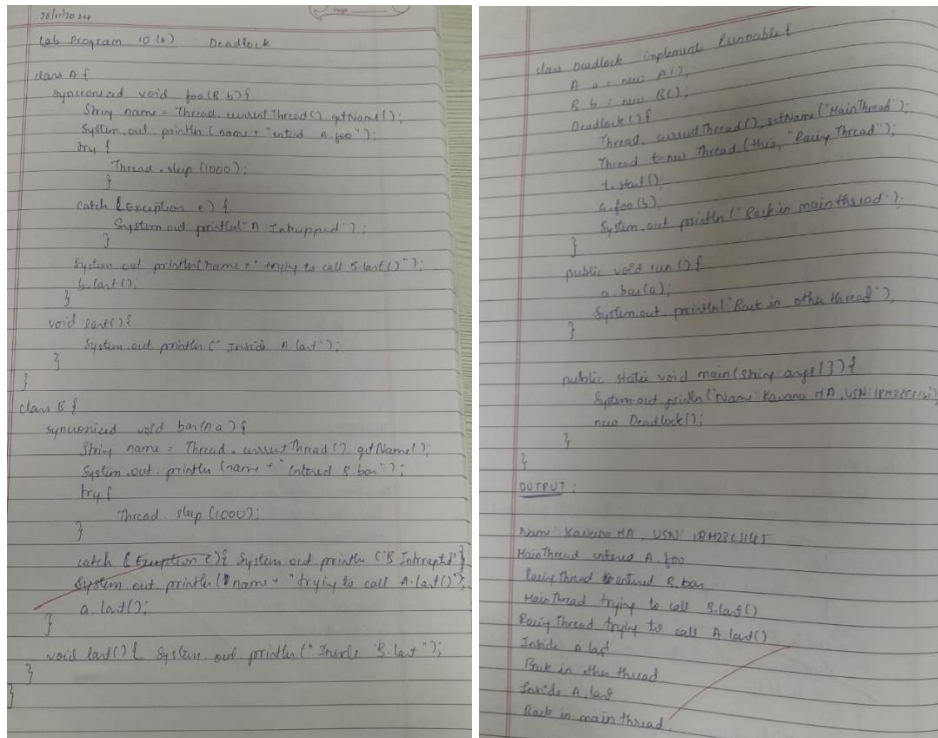 28/11/2024
Lab Program 10 (b) Deadlock
class A {
syncronized void foo(B b){
String name = Thread.currentThread().getName();
System.out.println(name + "entered A.foo");
try {
Thread.sleep(1000);
}
catch (Exception e) {
System.out.println("A Intrupped");
}
System.out println(name + "trying to call B.last()");
b.last();
}
void last(){
System.out println(" Inside A.last");
}
}
class B {
syncronized void bar(A a) {
String name = Thread.currentThread().getName();
System.out.println(name + "entered B.bar");
try {
Thread.sleep(1000);
}
catch (Exception e){ System.out.println("B Intrrupted"}
System.out.println(name + "trying to call A.last()");
a.last();
}
void last() { System.out.println("Inside B.last");
}
}
class Deadlock implement Runnable {
A a = new A();
B b = new B();
Deadlock(){
Thread.currentThread().setName("MainThread");
Thread t = new Thread (this, "Racing Thread");
t.start();
a.foo(b);
System.out println("Back in main thread");
}
public void run(){
a.bar(a);
System.out.println("Back in other thread");
}
public static void main(String args[]) {
System.out.println("Name: Kavana MA, USN:
new Deadlock();
}
}
OUTPUT:
Name: Kavana MA, USN:
MainThread entered A.foo
Racing Thread entered B.bar
MainThread trying to call B.last()
Racing Thread trying to call A.last()
Inside A.last
Back in other thread
Inside A.last
Back in main thread.